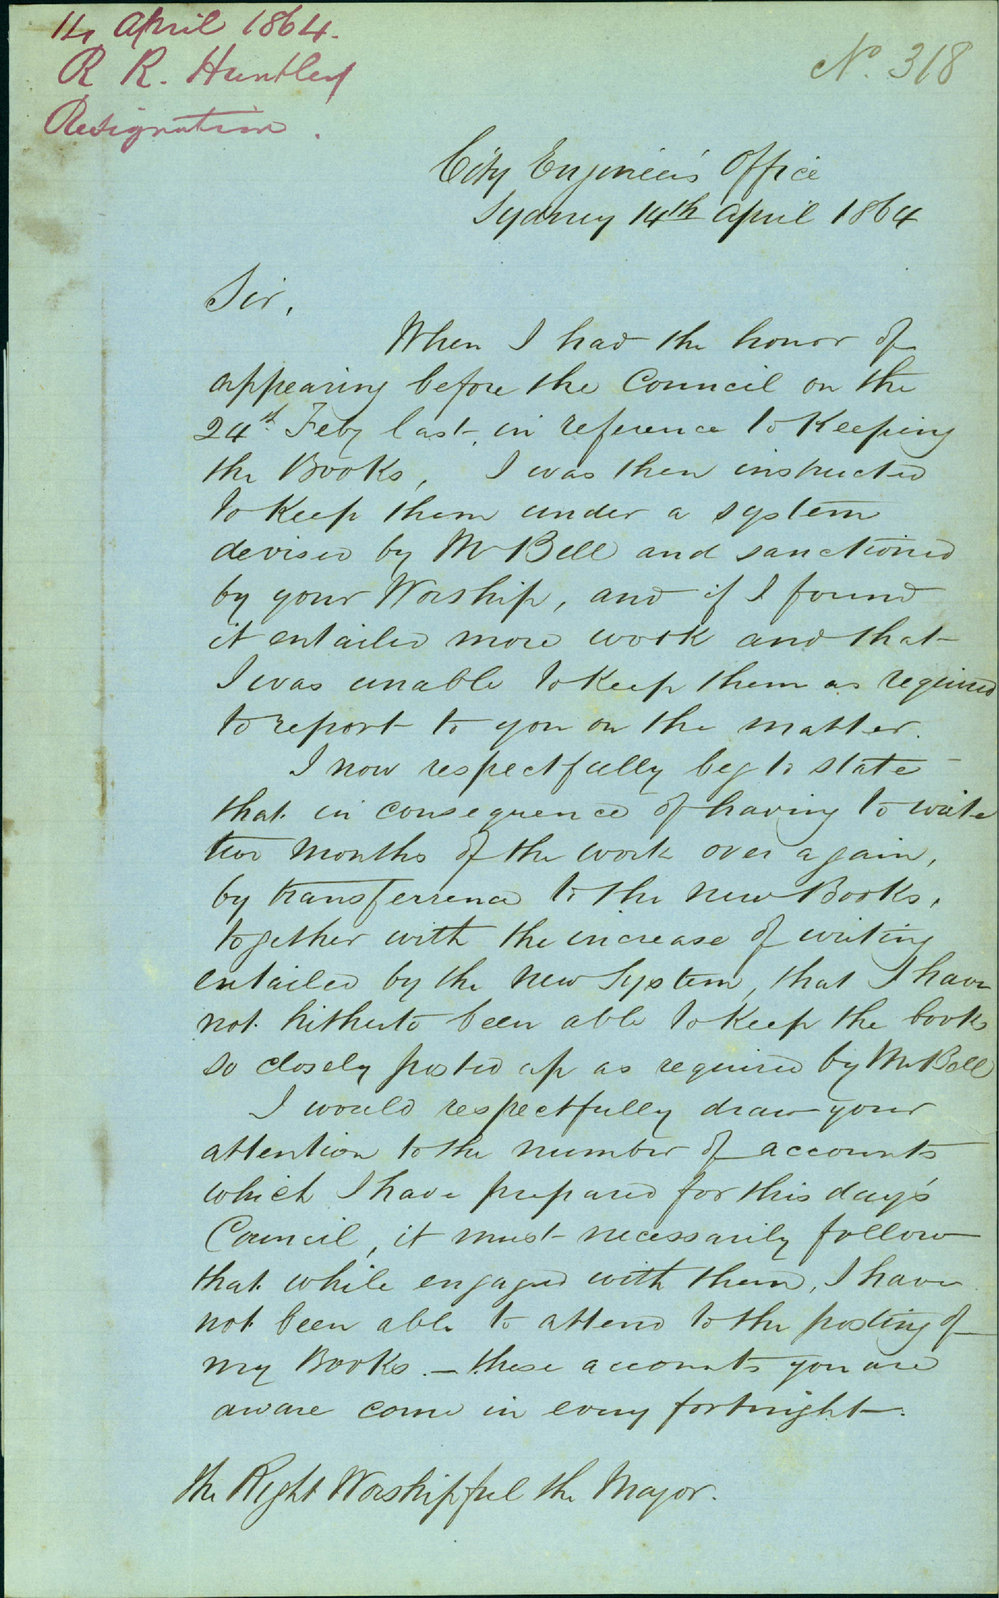 14 April 1864.
R R. Huntley
Resignation.
No. 318
City Engineer's Office
Sydney 14th April 1864
Sir,
When I had the honor of
appearing before the Council on the
24th Feby last, in reference to keeping
the Books, I was then instructed
to keep them under a system
devised by Mr Bell and sanctioned
by your Worship, and if I found
it entailed more work and that
I was unable to keep them as required
to report to you on the matter.
I now respectfully beg to state
that in consequence of having to write
two months of the work over again,
by transferrence to the new Books,
together with the increase of writing
entailed by the new System, that I have
not hitherto been able to keep the books
so closely posted up as required by Mr Bell
I would respectfully draw your
attention to the number of accounts
which I have prepared for this day's
Council, it must necessarily follow
that while engaged with them, I have
not been able to attend to the posting of
my Books. – these accounts you are
aware come in every fortnight.
The Right Worshipful the Mayor.